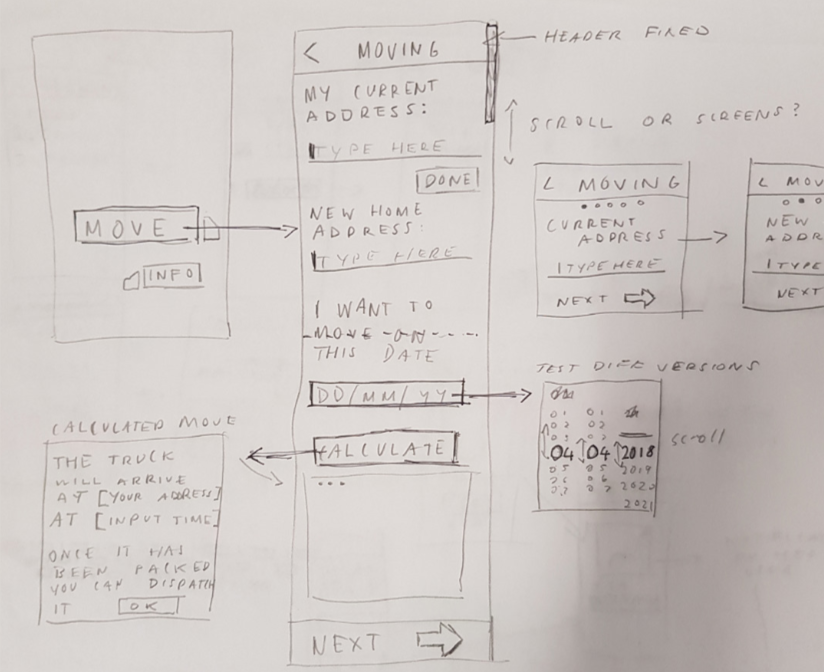 MOVE
INFO
< MOVING
MY CURRENT
ADDRESS:
TYPE HERE
DONE
NEW HOME
ADDRESS:
TYPE HERE
I WANT TO
MOVE ON
THIS DATE
DD/MM/YY
CALCULATE
...
NEXT
HEADER FIXED
SCROLL OR SCREENS?
< MOVING
CURRENT
ADDRESS
TYPE HERE
NEXT
< MOV
NEW
ADDR
TYPE
NEXT
TEST DIFF VERSIONS
01 01
02 02
03 03
04 04 2018
05 05 2019
06 06 2020
07 07
2021
scroll
CALCULATED MOVE
THE TRUCK
WILL ARRIVE
AT [YOUR ADDRESS]
AT [INPUT TIME]
ONCE IT HAS
BEEN PACKED
YOU CAN DISPATCH
IT OK